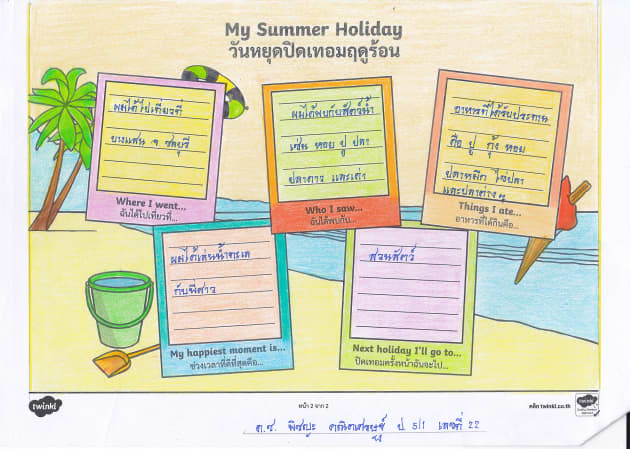 My Summer Holiday
วันหยุดปิดเทอมฤดูร้อน
ผมได้ไปเที่ยวที่
บางแสน จ. ชลบุรี
Where I went...
ฉันได้ไปเที่ยวที่...
ผมได้พบกับสัตว์น้ำ
เช่น หอย ปู ปลา
ปลาดาว และเต่า
Who I saw...
ฉันได้พบกับ...
อาหารที่ได้รับประทาน
คือ ปู กุ้ง หอย
ปลาหมึก ไข่ปลา
และปลาต่างๆ
Things I ate...
อาหารที่ได้กินคือ...
ผมได้เล่นน้ำทะเล
กับพี่สาว
My happiest moment is...
ช่วงเวลาที่ดีที่สุดคือ...
สวนสัตว์
Next holiday I'll go to...
ปิดเทอมครั้งหน้าฉันจะไป...
twinkl
หน้า 2 จาก 2
คลิก twinkl.co.th
twinkl
ด.ช. ป 5/1 เลขที่ 22